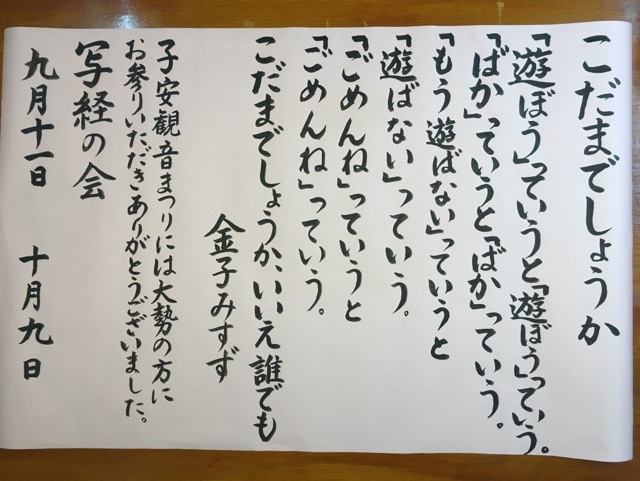 こだまでしょうか
「遊ぼう」っていうと「遊ぼう」っていう。
「ばか」っていうと「ばか」っていう。
「もう遊ばない」っていうと
「遊ばない」っていう。
「ごめんね」っていうと
「ごめんね」っていう。
こだまでしょうか、いいえ誰でも
金子みすず
子安観音まつりには大勢の方に
お参りいただきありがとうございました。
写経の会
九月十一日 十月九日